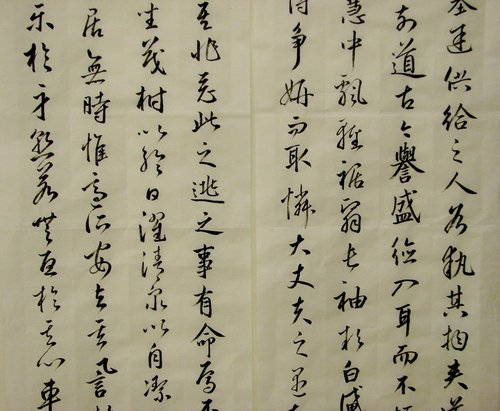 塞途供給之人各執其物夾道
前道古今譽盛德入耳而不
慧中飄輕裾翳長袖粉白黛
恃争妍而取憐大丈夫之遇
吾非惡此之逃之事有命焉不
坐茂樹以終日濯清泉以自潔
居無時惟適之安與其言於
樂於身孰若無憂於其心車